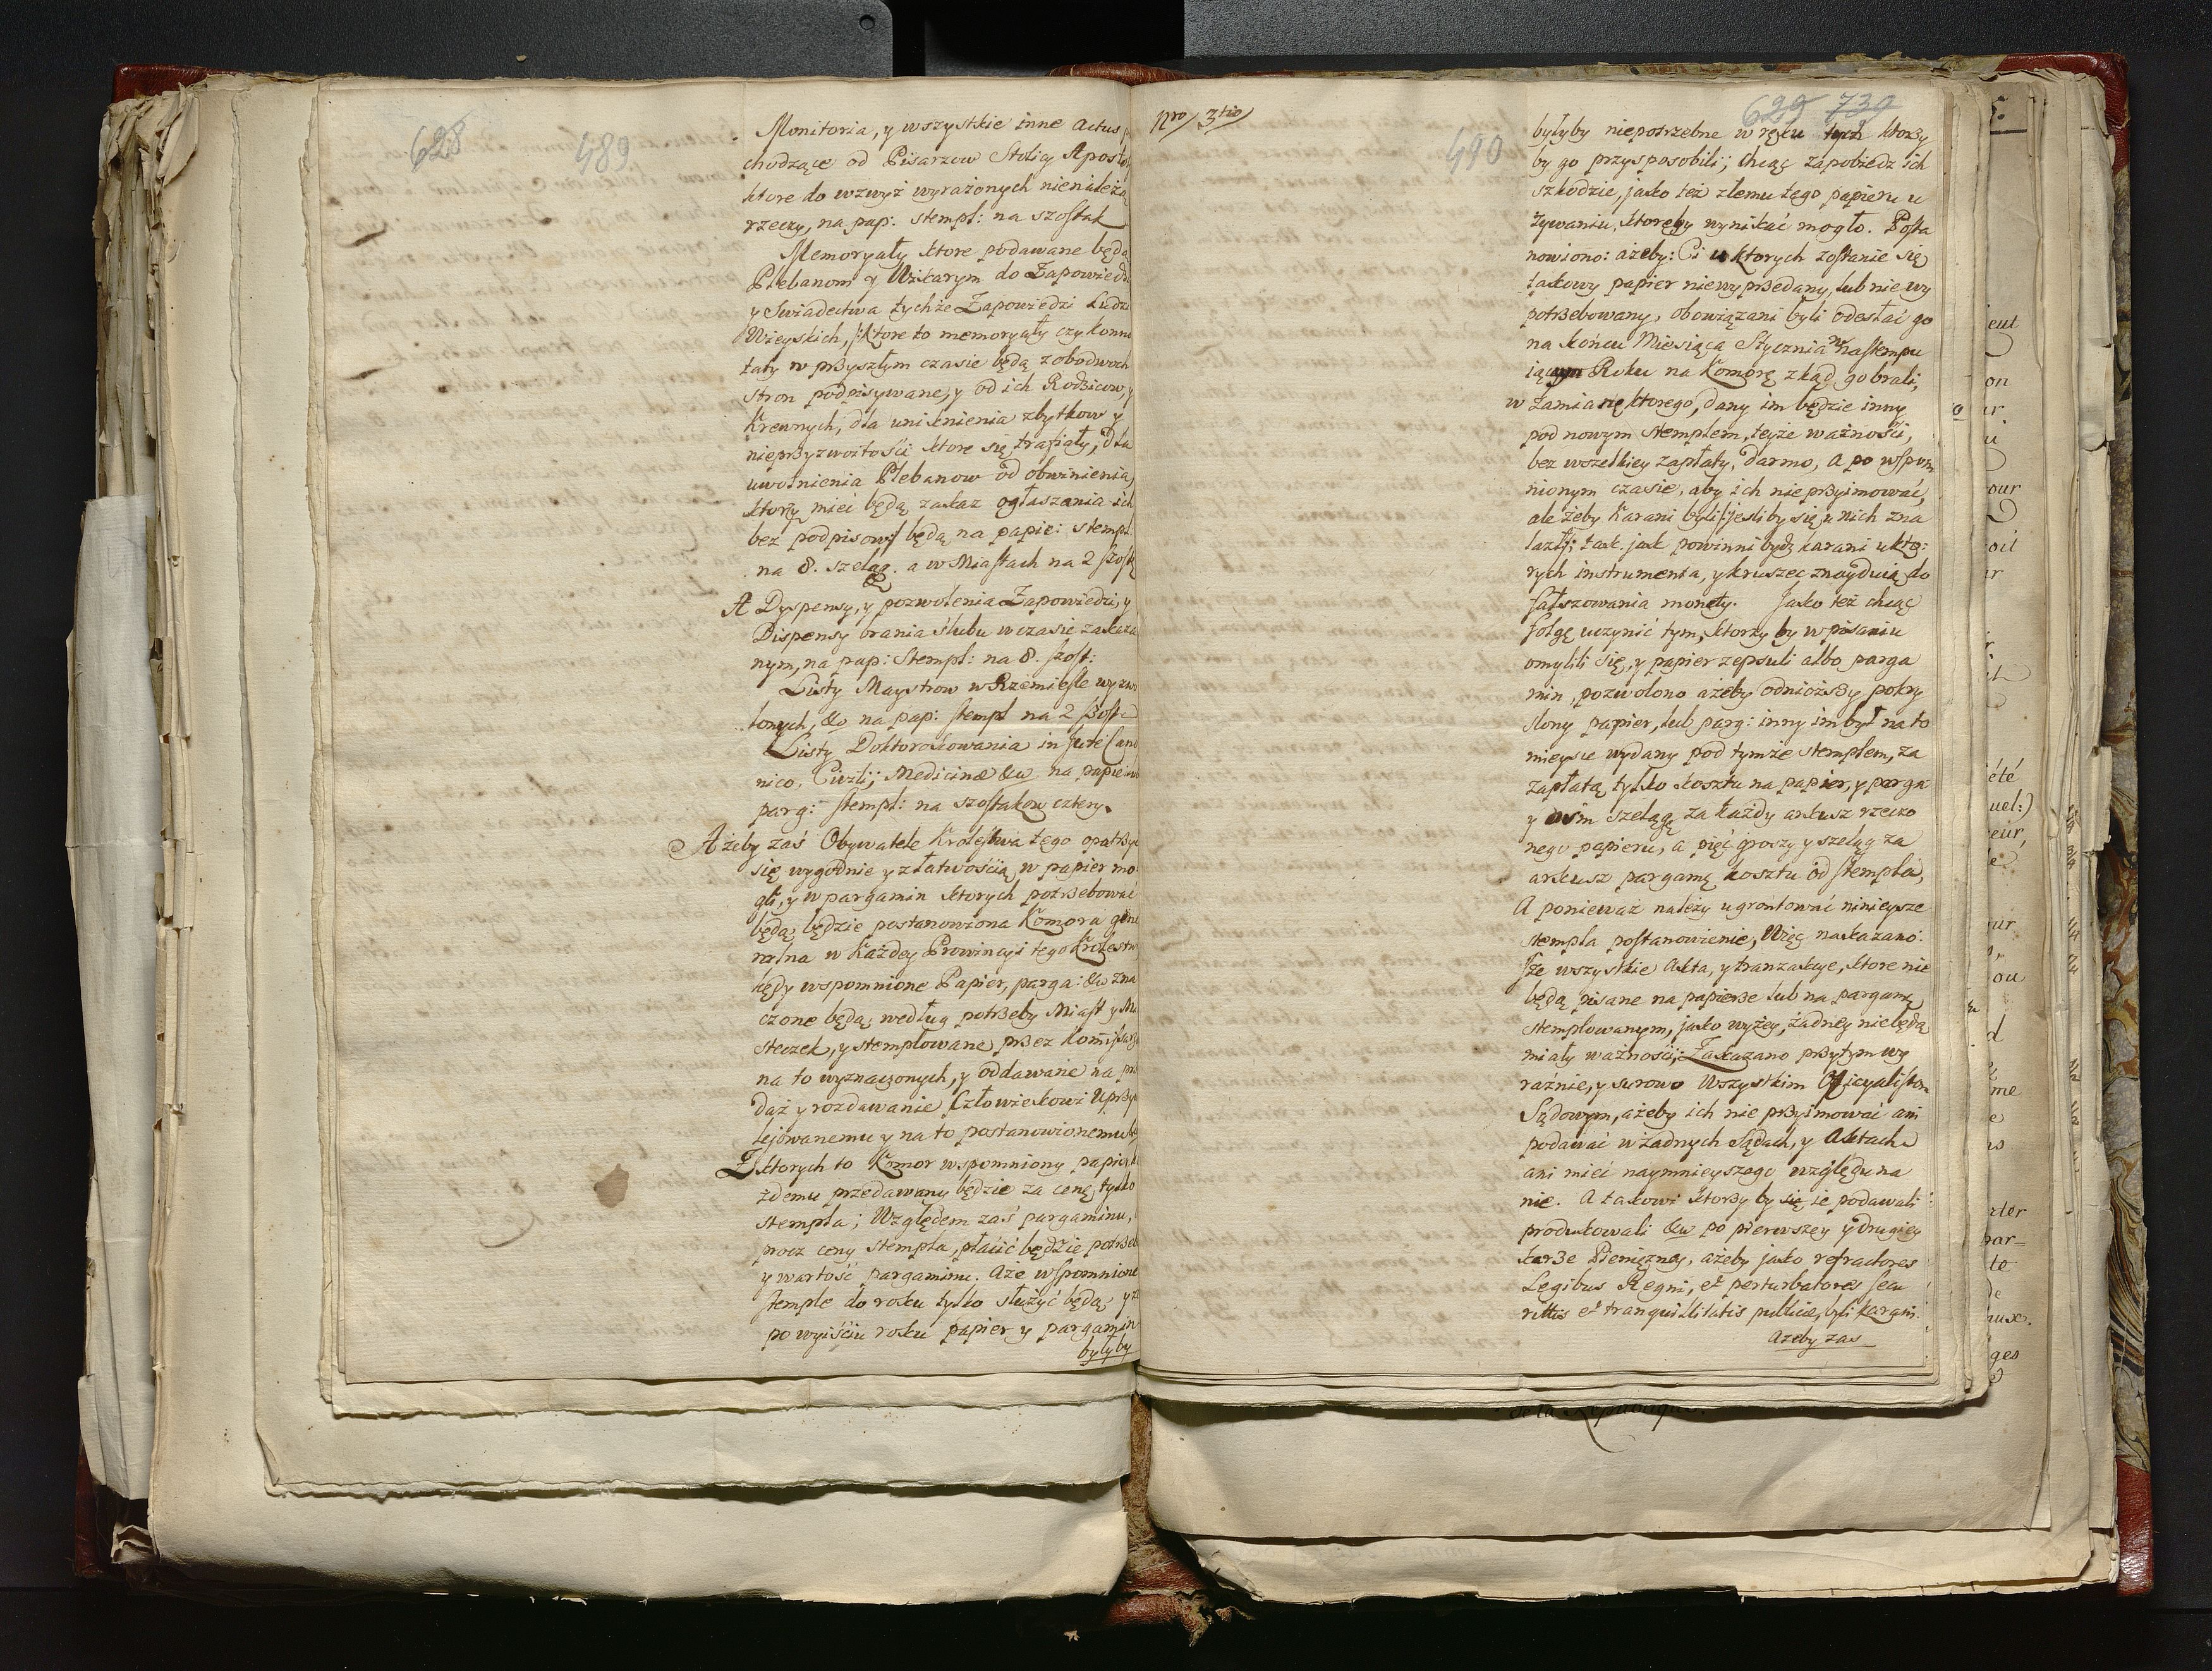 628 489
Monitoria, y wszystkie inne Actus
chodzące od Pisarzow Stolicy Aposto
ktore do wzwyż wyrażonych nienależą
rzeczy, na pap: stempl: na szostak
Memoryały ktore podawane będą
Plebanom y Wikarym do Zapowiedzi
y Swiadectwa tychże Zapowiedzi Ludzi
Wieyskich, /:Ktore to memoryały czy konno
taty w przyszłym czasie będą z obodwoch
stron podpisywane, y od ich Rodzicow y
Krewnych, dla uniknienia zbytkow y
nieprzyzwoitości ktore się trafiały, dla
uwolnienia Plebanow od obwinienia,
ktorzy mieć będą zakaz ogłaszania ich
bez podpisow/ będą na papie: stempl:
na 8. szeląg. a w Miastach na 2 szost
A Dyspensy, y pozwolenia Zapowiedzi, y
Dispensy brania ślubu w czasie zakaza
nym, na pap: Stempl: na 8. szost:
Listy Maystrow w Rzemieśle wyzwo
lonych, &c na pap: stempl na 2 szosta
Listy Doktorowania in Jure Cano
nico, Civili; Medicinæ &c. na papie
parg: stempl: na szostakow cztery.
Ażeby zaś Obywatele Krolestwa tego opatrzyć
się wygodnie y z łatwością w papier mo
gli, y w pargamin ktorych potrzebować
będą, będzie postanowiona Komora gene
ralna w każdey Prowincyi tego Krolestwa
kędy wspomnione Papier, parga: &c zna
czone będą, według potrzeby Miast y Mia
steczek, y stemplowane przez Kommissarzo
na to wyznaczonych, y oddawane na prze
daż y rozdawanie Człowiekowi Uprzywi
lejowanemu y na to postanowionemu
Z ktorych to Komor wspomniony papier, ka
żdemu przedawany będzie za cenę tylko
stempla; Względem zaś pargaminu,
procz ceny stempla, płacić będzie potrzeb
y wartość pargaminu. Aże wspomnione
stemple do roku tylko służyć będą, y z
po wyiściu roku papier y pargamin
byłyby
Nro 3tio
490 629 730
byłyby niepotrzebne w ręku tych ktorzy
by go przysposobili; chcąc zapobiedz ich
szkodzie, jako też złemu tego papieru u
żywaniu, ktoreby wynikać mogło. Posta
nowiono: ażeby: Ci u ktorych zostanie się
takowy papier niewyprzedany, lub niewy
potrzebowany, obowiązani byli odesłać go
na końcu Miesiąca Stycznia w nastempu
iącym Roku na Komorę zkąd go brali,
w Zamianę ktorego, dany im będzie inny
pod nowym stemplem, teyże ważności,
bez wszelkiey zapłaty, darmo, a po wspom
nionym czasie, aby ich nie przyimować,
ale żeby karani byli /:jesliby się u nich zna
lazł:/ tak jak powinni bydź karani u kto:
rych instrumenta, y kruszec znayduią do
fałszowania monety. Jako też chcąc
folgę uczynić tym, ktorzy by w pisaniu
omylili się, y papier zepsuli albo parga
min, pozwolono ażeby odnioższy pokry
slony papier, lub parg: inny im był na to
mieysce wydany pod tymże stemplem, za
zapłatą tylko kosztu na papier, y parga
y osm szelągę za każdy arkusz rzeczo
nego papieru, a pięć groszy y szeląg za
arkusz pargamę kosztu od stempla,
A ponieważ należy ugrontować ninieysze
stempla postanowienie, Więc nakazano:
Że wszystkie Akta, y tranzakcye, ktore nie
będą pisane na papierze lub na pargamę
stemplowanym, jako wyżey, żadney nie będą
miały ważności; Zakazano przytym wy
raźnie, y surowo Wszystkim Officyalistom
Sądowym, ażeby ich nie przyimować ani
podawać w żadnych Sądach, y Aktach
ani mieć naymnieyszego względu na
nie. A takowi ktorzy by się ie podawali
produkowali &c po pierwszey y drugiey
karze Pieniężney, ażeby jako refractores
Legibus Regni, et perturbatores secu
ritatis et tranquillitatis publicæ, byli karani.
Ażeby zas
eut
on
ur
our
oit
ir
été
uel:)
eur,
ur
ou
d
me
e
ter
par=
te
de
aux.
ges
de la Republique.